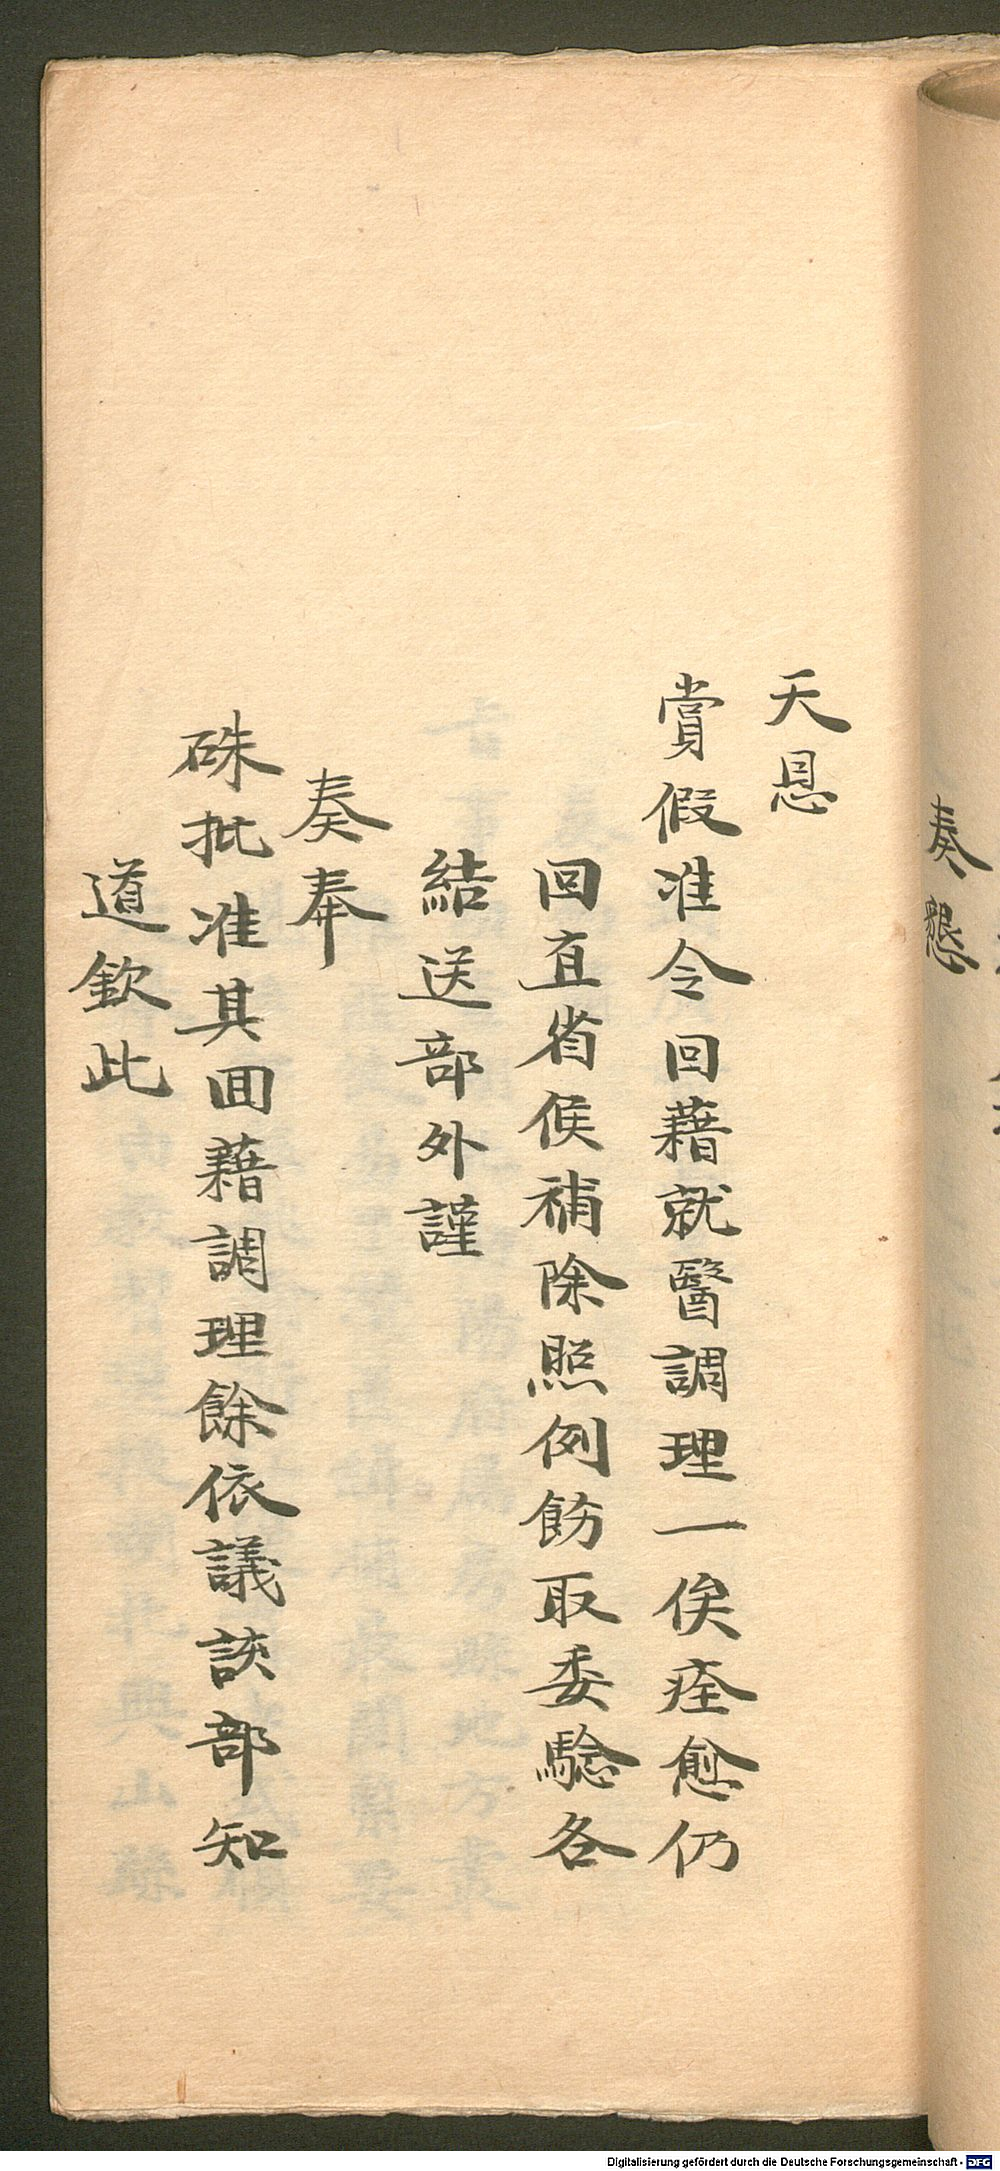 奏懇
天恩
賞假准令回藉就醫調理一俟痊愈仍
回直省候補除照例飭取委驗各
結送部外謹
奏奉
硃批准其回藉調理餘依議該部知
道欽此
Digitalisierung gefördert durch die Deutsche Forschungsgemeinschaft - DFG